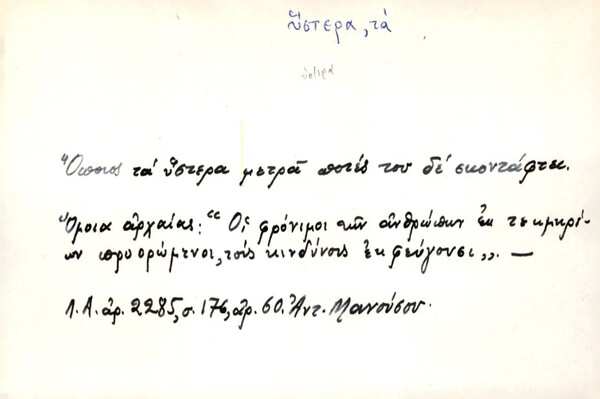 ὕστερα, τά
ὕστερα
Ὅποιος τά ὕστερα μετρᾶ ποτές του δέ σκοντάφτει.
Ὅμοια ἀρχαίας: "Οἱ φρόνιμοι τῶν ἀνθρώπων ἐκ τεκμηρί-
ων προορώμενοι, τούς κινδύνους ἐκφεύγουσι„. —
Λ.Α. ἀρ. 2285, σ. 176, ἀρ. 60. Ἀντ. Μανούσου.